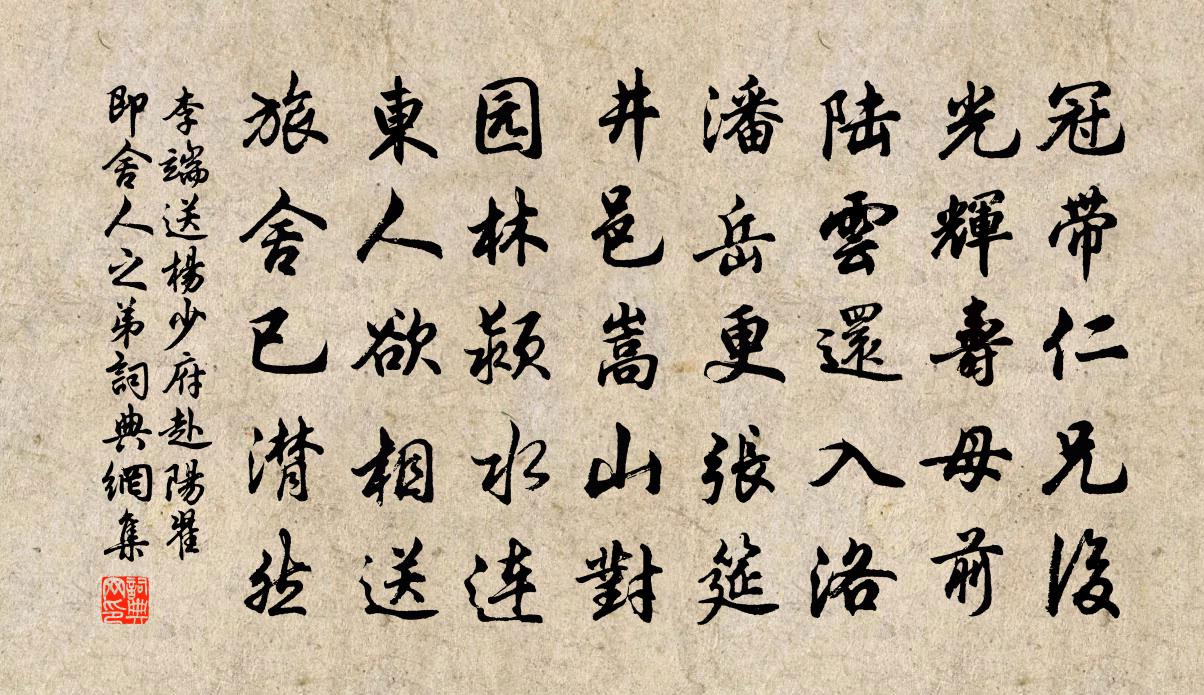 冠带仁兄後
光輝壽母前
陆雲還入洛
潘岳更張筵
井邑嵩山對
园林颍水連
東人欲相送
旅舍已潸然
李端送楊少府赴陽翟
即舍人之弟詞典網集
詞典网印